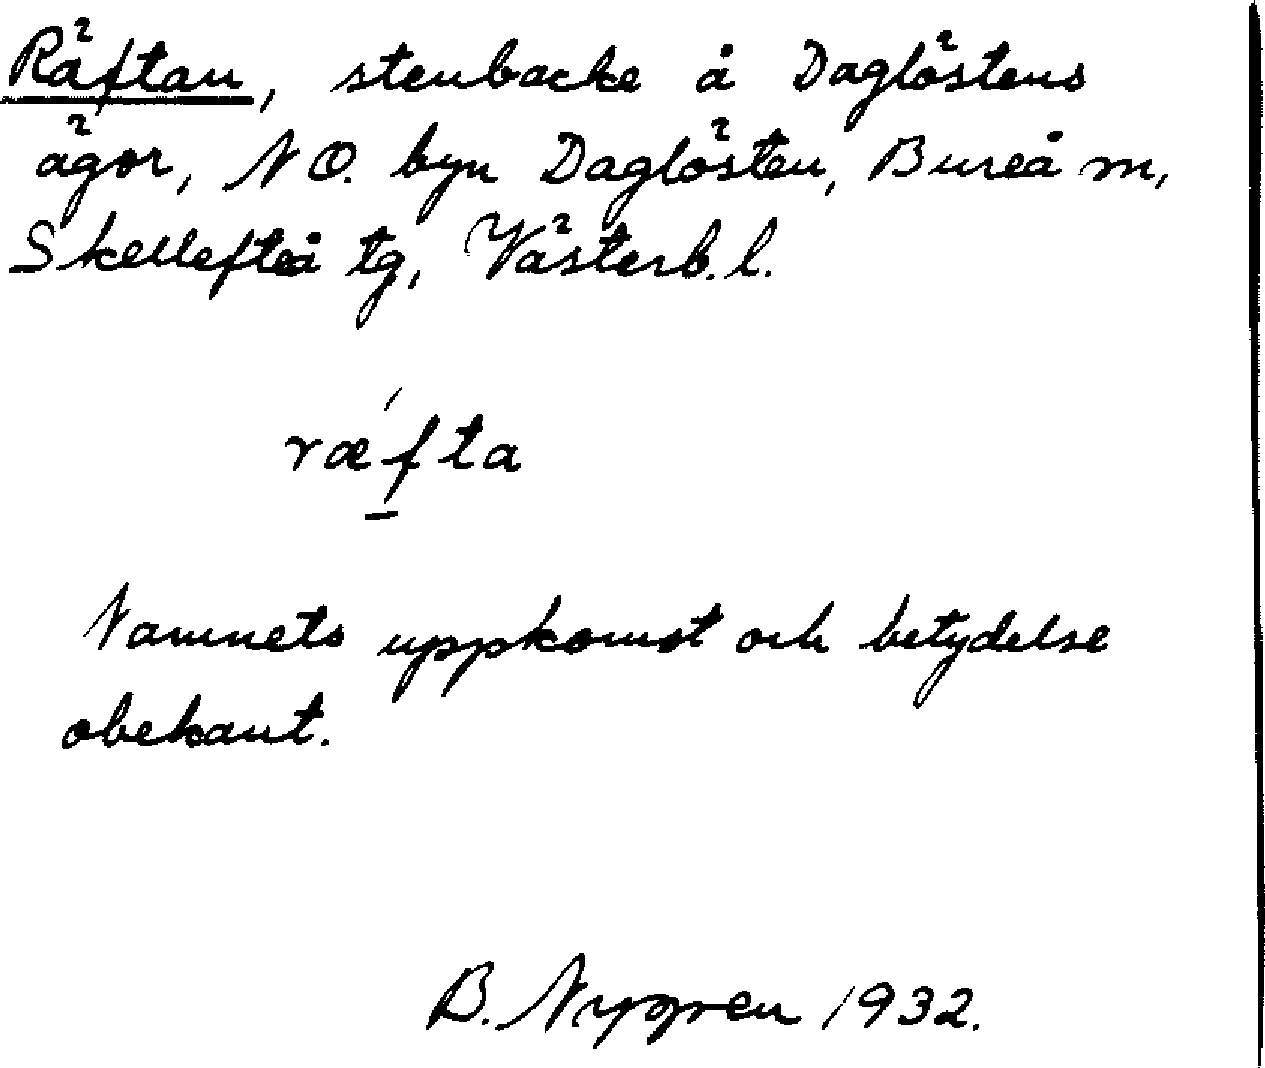 Räftan, stenbacke å Daglöstens
ägor, NO. byn Daglösten, Bureå m,
Skellefteå tg, Västerb. l.
ræ´fta
Namnets uppkomst och betydelse
obekant.
B. Nygren 1932.